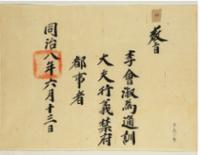 敎旨
李會淑為通訓
大夫行義禁府
都事者
同治八年六月十三日